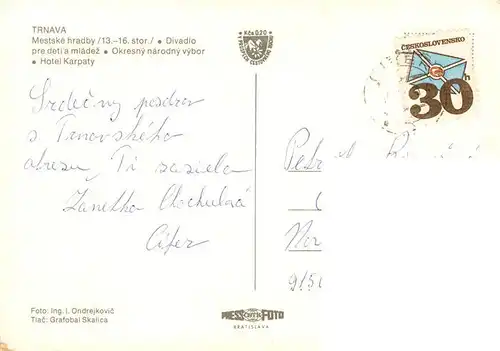 TRNAVA
Mestské hradby /13.-16. stor./ • Divadlo
pre deti a mládež • Okresný národný výbor
• Hotel Karpaty
Kčs 0,20
ČESKOSLOVENSKO
30h
Srdečný pozdrav
s Trnovského
okresu, Ti zasiela
Žanetka
Cífer
Petr
Nor
915
Foto: Ing. I. Ondrejkovič
Tlač: Grafobal Skalica
PRESSFOTO
BRATISLAVA